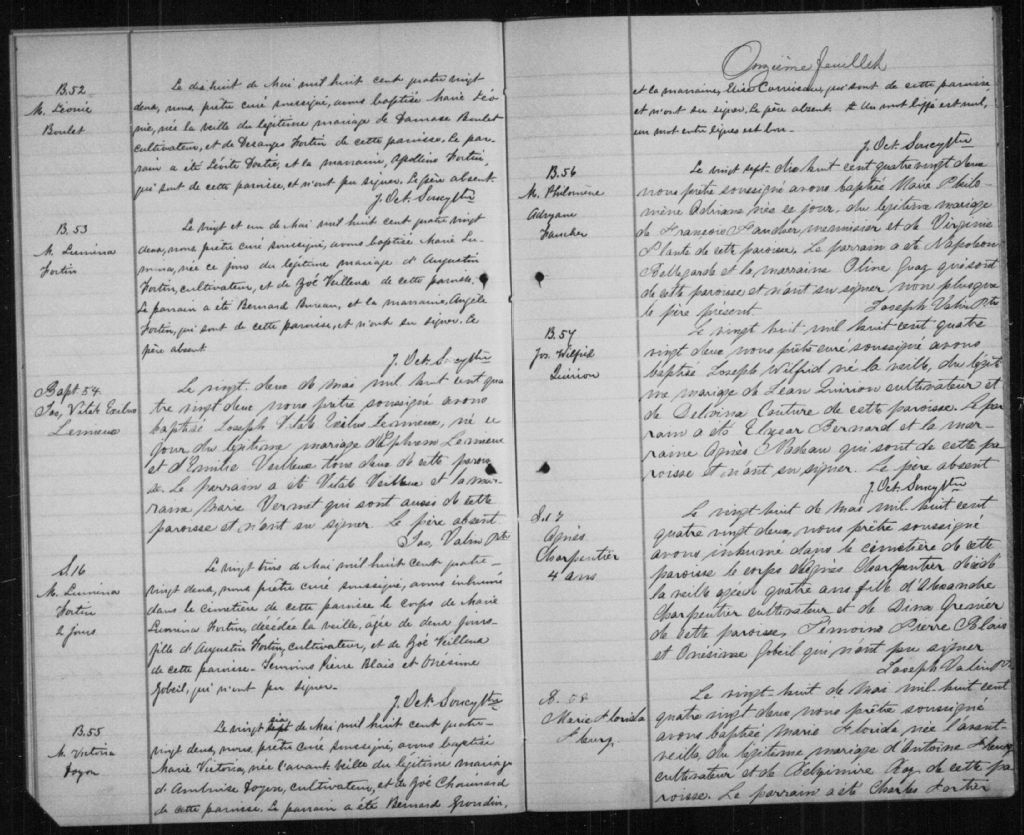 B.52
M. Léonie
Boulet
Le dix huit de Mai mil huit cent quatre vingt
deux, nous, prêtre curé soussigné, avons baptisé Marie Léo-
nie, née la veille du légitime mariage de Damase Boulet
cultivateur, et de Desanges Fortin de cette paroisse. Le par-
rain a été et la marraine, Apolline Fortin,
qui sont de cette paroisse, et n'ont pu signer. Le père absent.
J. Oct. Soucy Ptre
B. 53
M. Lumina
Fortin
Le vingt et un de Mai mil huit cent quatre vingt
deux, nous, prêtre curé soussigné, avons baptisé Marie Lu-
mina, née ce jour du légitime mariage d'Augustin
Fortin, cultivateur, et de Zoé Veilleux de cette paroisse.
Le parrain a été Bernard Bureau, et la marraine Angèle
Fortin, qui sont de cette paroisse, et n'ont su signer. Le
père absent
J. Oct. Soucy Ptre
Bapt. 54.
Jos, Vitale Exilus
Lemieux
Le vingt deux de mai mil huit cent qua
tre vingt deux nous prêtre soussigné avons
baptisé Joseph Vitale Exilus Lemieux, né ce
jour du légitime mariage d'Ephrem Lemieux
et d'Emilie Veilleux tous deux de cette parois
se. Le parrain a été Vitale Veilleux et la mar-
raine Marie Vermet qui sont aussi de cette
paroisse et n'ont su signer. Le père absent.
Jos, Valin Ptre
S.16
M. Lumina
Fortin
2 jours
Le vingt trois de Mai mil huit cent quatre-
vingt deux, nous, prêtre curé soussigné, avons inhumé
dans le cimetière de cette paroisse le corps de Marie
Lumina Fortin, décédée la veille, agée de deux jours
fille d'Augustin Fortin, cultivateur, et de Zoé Veilleux
de cette paroisse. Témoins Pierre Blais et Onésime
Gobeil, qui n'ont pu signer.
J. Oct. Soucy Ptre
B.55
M. Victoria
Doyon
Le vingt six de Mai mil huit cent quatre-
vingt deux, nous, prêtre curé soussigné, avons baptisé
Marie Victoria, née l'avant veille du légitime mariage
d'Ambroise Doyon, cultivateur, et de Zoé Chouinard
de cette paroisse. Le parrain a été Bernard Grondin,
Onzième feuillet
et la marraine, qui sont de cette paroisse,
et n'ont su signer. Le père absent. Un mot biffé est nul,
un mot entre lignes est bon.
J. Oct. Soucy Ptre
B.56
M. Philomène
Adryane
Faucher
Le vingt sept. dix huit cent quatre vingt deux
nous prêtre soussigné avons baptisé Marie Philo-
mène Adriane née ce jour, du légitime mariage
de François Faucher, menuisier et de Virginie
Plante de cette paroisse. Le parrain a été Napoléon
Bellegarde et la marraine Oline Guay qui sont
de cette paroisse et n'ont su signer non plus que
le père présent. Joseph Valin Ptre
B.57
Jos. Wilfrid
Quirion
Le vingt huit, mil huit cent quatre
vingt deux, nous prêtre curé soussigné avons
baptisé Joseph Wilfrid né la veille, du légiti
me mariage de Jean Quirion cultivateur et
de Delvina Couture de cette paroisse. Le par
rain a été Elzear Bernard et la mar-
raine Agnès Nadeau qui sont de cette pa
roisse et n'ont su signer. Le père absent
J. Oct. Soucy Ptre
Agnès
Charpentier
4 ans
Le vingt huit de mai mil huit cent
quatre vingt deux, nous prêtre soussigné
avons inhumé dans le cimetière de cette
paroisse le corps d'Agnès Charpentier décédé
la veille agée quatre ans fille d'Alexandre
Charpentier cultivateur et de Dina Grenier
de cette paroisse. Témoins Pierre Blais
et Onésime Gobeil qui n'ont pu signer
Joseph Valin Ptre
B. 58
Marie Florida
Fleury
Le vingt-huit de mai mil huit cent
quatre vingt deux nous prêtre soussigné
avons baptisé Marie Florida née l'avant
veille, du légitime mariage d'Antoine Fleury
cultivateur et de Delzimire Roy de cette pa
roisse. Le parrain a été Charles Fortier